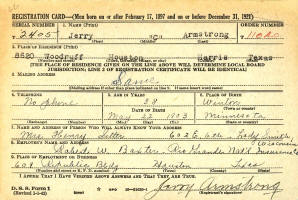 REGISTRATION CARD—(Men born on or after February 17, 1897 and on or before December 31, 1921)
SERIAL NUMBER 1. NAME (Print) ORDER NUMBER
T 2405 Jerry Armstrong
(First) (Middle) (Last)
2. PLACE OF RESIDENCE (Print)
8620 Woodruff Houston Harris Texas
[THE PLACE OF RESIDENCE GIVEN ON THE LINE ABOVE WILL DETERMINE LOCAL BOARD
JURISDICTION; LINE 2 OF REGISTRATION CERTIFICATE WILL BE IDENTICAL]
3. MAILING ADDRESS
Same
4. TELEPHONE 5. AGE IN YEARS 6. PLACE OF BIRTH
No phone 38 Winton
DATE OF BIRTH
May 22 1903 Minnesota
7. NAME AND ADDRESS OF PERSON WHO WILL ALWAYS KNOW YOUR ADDRESS
Mrs. 602 E. 6th Ladysmith
8. EMPLOYER'S NAME AND ADDRESS Wisconsin
Robert W. Baxter Rio Grande Nat'l Insurance
9. PLACE OF EMPLOYMENT OR BUSINESS
609 Republic Bldg Houston Texas
I AFFIRM THAT I HAVE VERIFIED ABOVE ANSWERS AND THAT THEY ARE TRUE.
D. S. S. Form 1 Jerry Armstrong